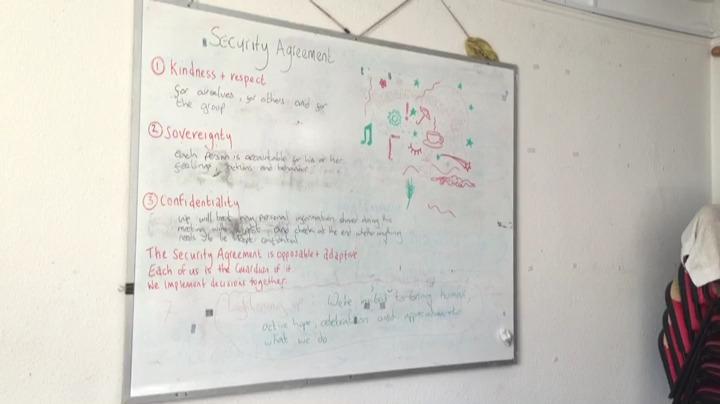 Security Agreement
① Kindness + respect
for ourselves, for others and for
the group
② Sovereignty
each person is accountable for his or her
feelings, actions and behaviour
③ Confidentiality
we will keep any personal information shared during this
meeting and check at the end whether anything
needs to be kept confidential
The Security Agreement is opposable + adaptive
Each of us is the Guardian of it
We implement decisions together.
We're to bring humour,
active hope, celebration and appreciation to
what we do